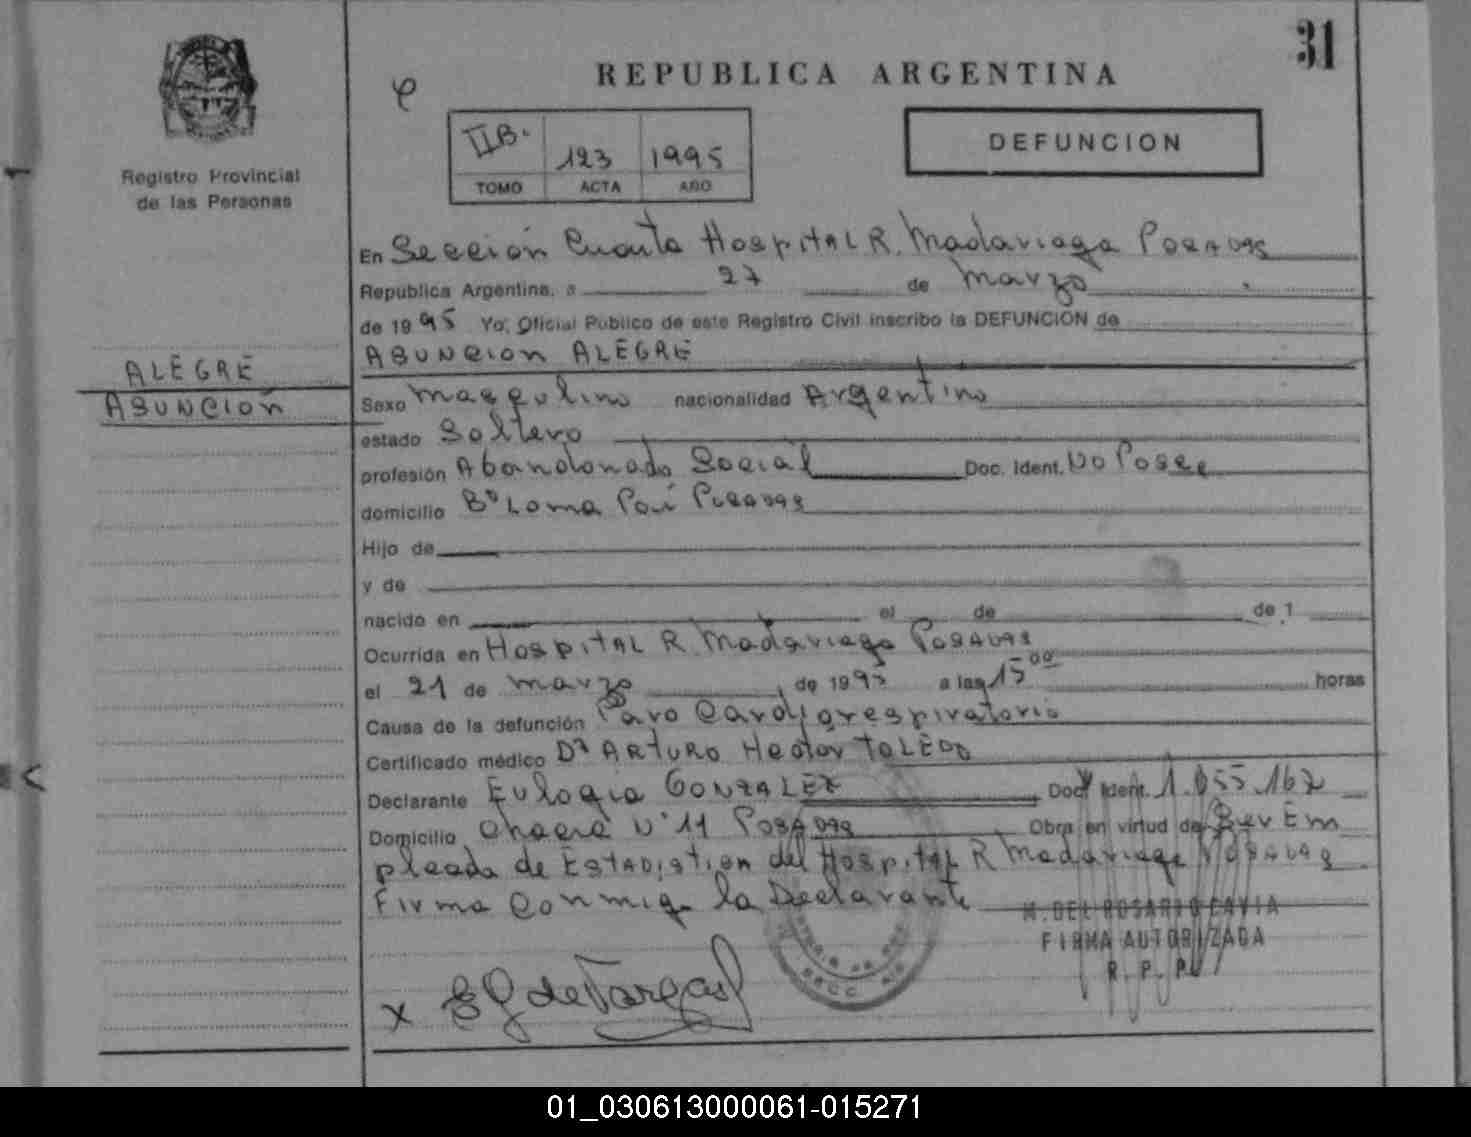 31
REPUBLICA ARGENTINA
IIB. 123 1995
TOMO ACTA AÑO
DEFUNCION
Registro Provincial
de las Personas
En Sección Cuarta Hospital R. Madariaga Posadas
Republica Argentina, a 27 de Marzo
de 1995 Yo, Oficial Publico de este Registro Civil inscribo la DEFUNCION de
ASUNCION ALEGRE
ALEGRE
ASUNCION
Sexo Masculino nacionalidad Argentino
estado Soltero
profesión Abandonado Social Doc. Ident. No Posee
domicilio Bº Loma Poí Posadas
Hijo de
y de
nacido en el de de 1
Ocurrida en Hospital R. Madariaga Posadas
el 21 de Marzo de 199 a las 15 00 horas
Causa de la defunción Paro Cardiorespiratorio
Certificado médico Dr ARTURO Hector TOLEDO
Declarante Eulogia GONZALEZ Doc. Ident. 1.055.167
Domicilio Chacra Nº 11 Posadas Obra en virtud de Ser Em
pleada de Estadistica del Hospital R Madariaga Posadas
Firma Conmigo la Declarante
M. DEL ROSARIO CAVIA
FIRMA AUTORIZADA
R. P. P.
x E G de Vargas
01_030613000061-015271